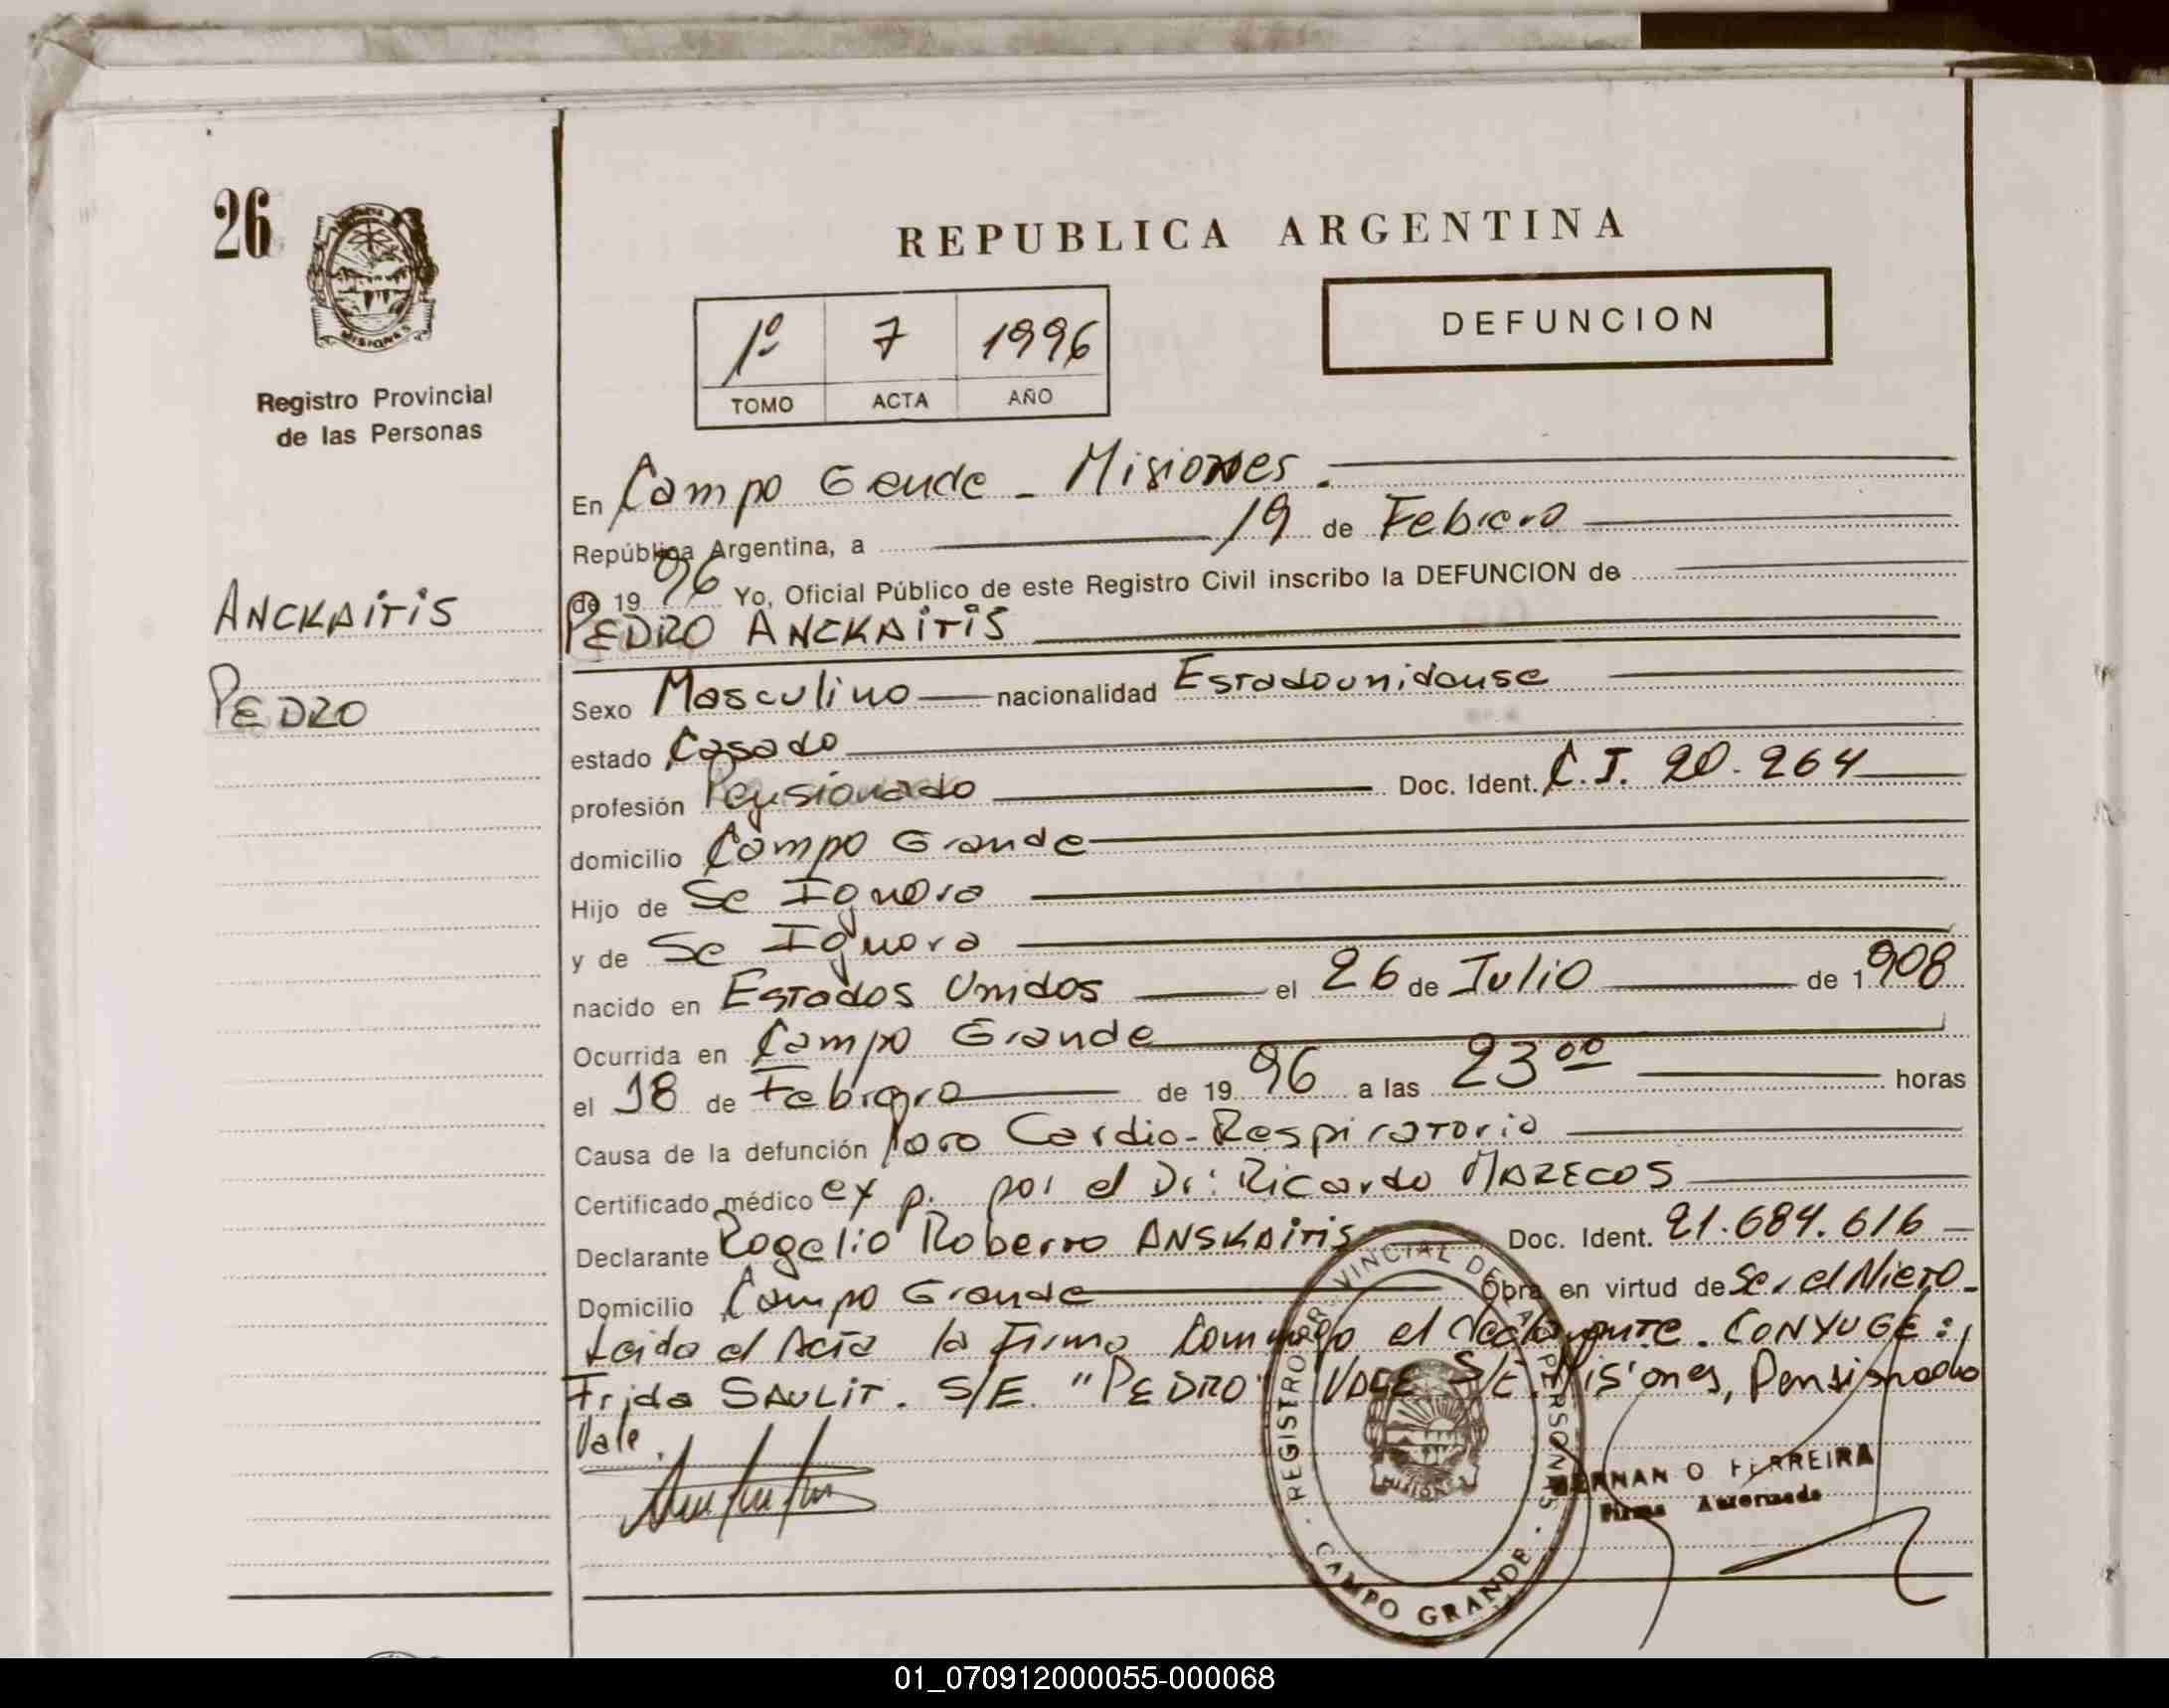 26
MISIONES
Registro Provincial
de las Personas
ANCKAITIS
PEDRO
REPUBLICA ARGENTINA
1º 7 1996
TOMO ACTA AÑO
DEFUNCION
En Campo Grande - Misiones.
República Argentina, a 19 de Febrero
de 1996 Yo, Oficial Público de este Registro Civil inscribo la DEFUNCION de
PEDRO ANCKAITIS
Sexo Masculino nacionalidad Estadounidense
estado Casado
profesión Pensionado Doc. Ident. C.I. 20.264
domicilio Campo Grande
Hijo de Se Ignora
y de Se Ignora
nacido en Estados Unidos el 26 de Julio de 1908
Ocurrida en Campo Grande
el 18 de Febrero de 1996 a las 23 00 horas
Causa de la defunción Paro Cardio-Respiratorio
Certificado médico exp. por el Dr: Ricardo MARECOS
Declarante Rogelio Roberto ANSKAITIS Doc. Ident. 21.684.616
Domicilio Campo Grande Obra en virtud de Ser el Nieto-
Leida el Acta la Firma Conmigo el declarante. CONYUGE:
Frida SAULIT. S/E. "PEDRO" VALE S/E. Misiones, Pensionado
Vale.
REGISTRO PROVINCIAL DE LAS PERSONAS
CAMPO GRANDE
MISIONES
HERNAN O. FERREIRA
Firma Autorizada
01_070912000055-000068